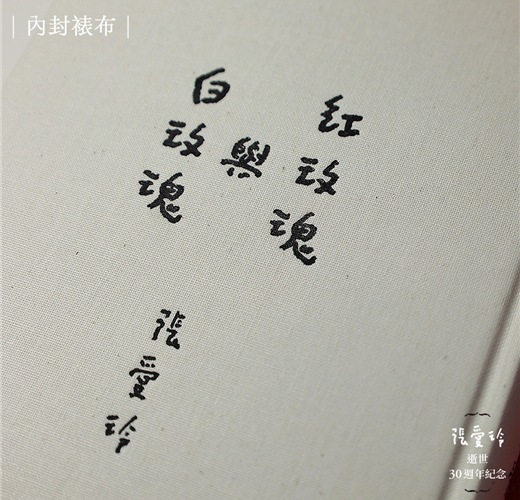 ｜內封裱布｜
紅玫瑰
與
白玫瑰
張愛玲
張愛玲
逝世
30週年紀念